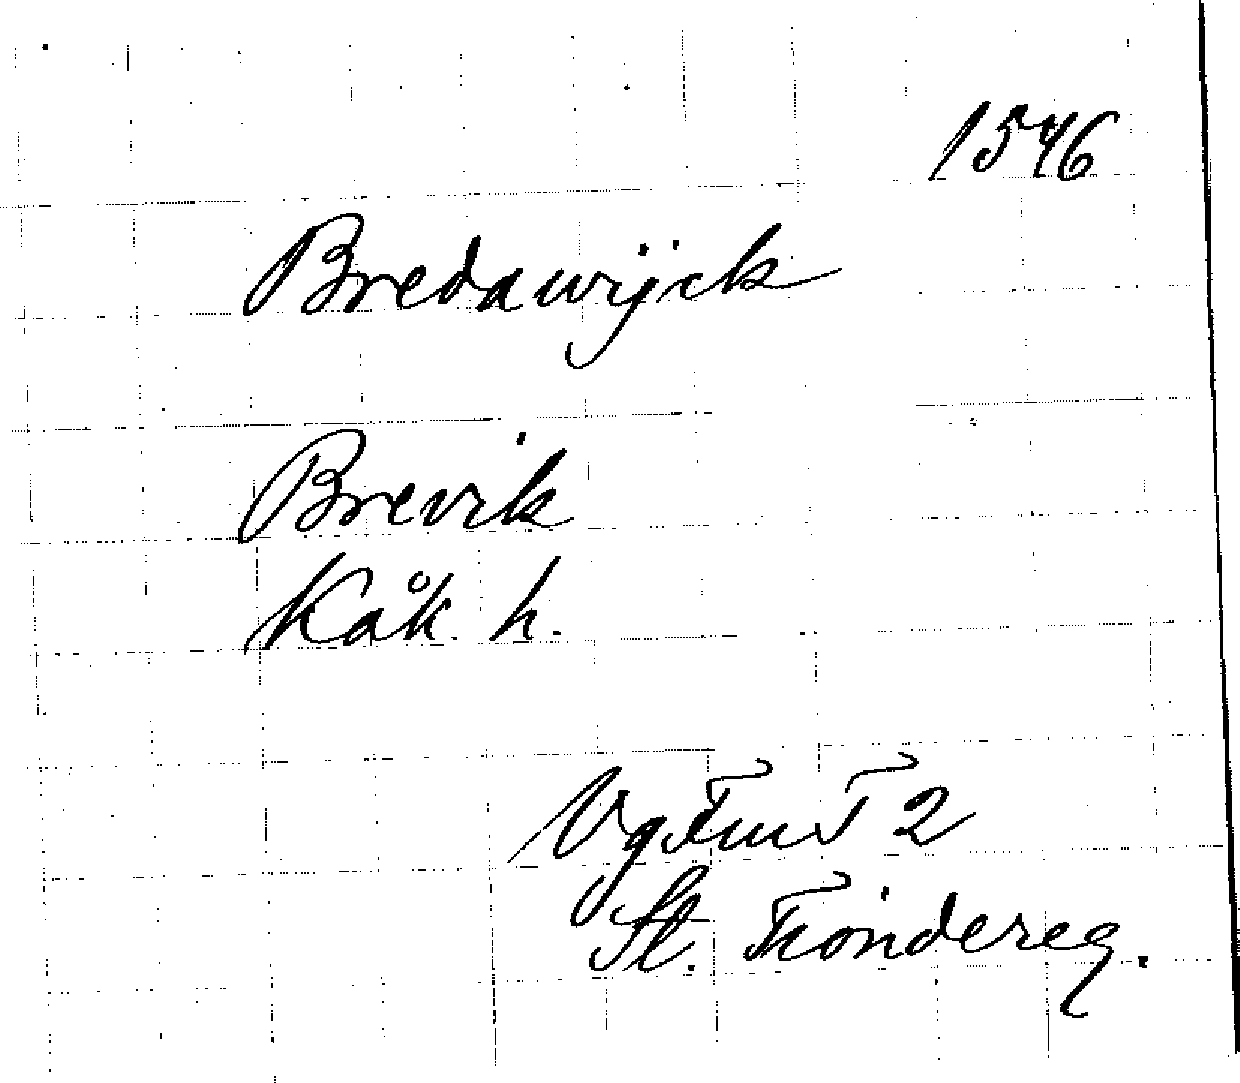 1546
Bredawijck
Brevik
Kåk h.
Vg Fur T 2
St. Tiondereg.